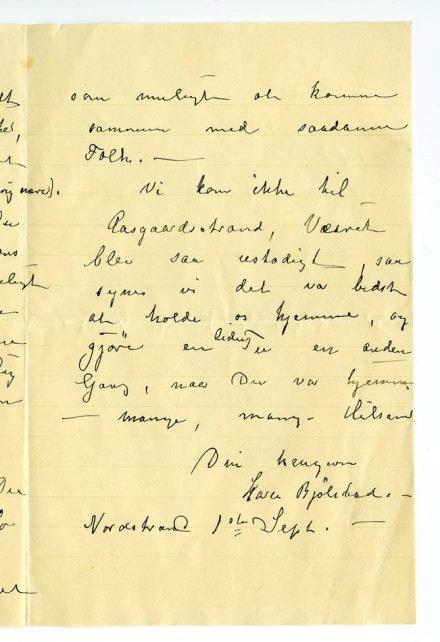 som muligt at komme
sammen med saadanne
Folk. —
Vi kom ikke til
Aasgaardstrand, Veiret
blev saa ustadigt, saa
synes vi det var bedst
at holde os hjemme, og
gjöre en liden Tu en anden
Gang, naar Du var hjemme
— mange, mange Hilsener
Din hengivne
Karen Bjölstad. —
Nordstrand 1ste Sept. —